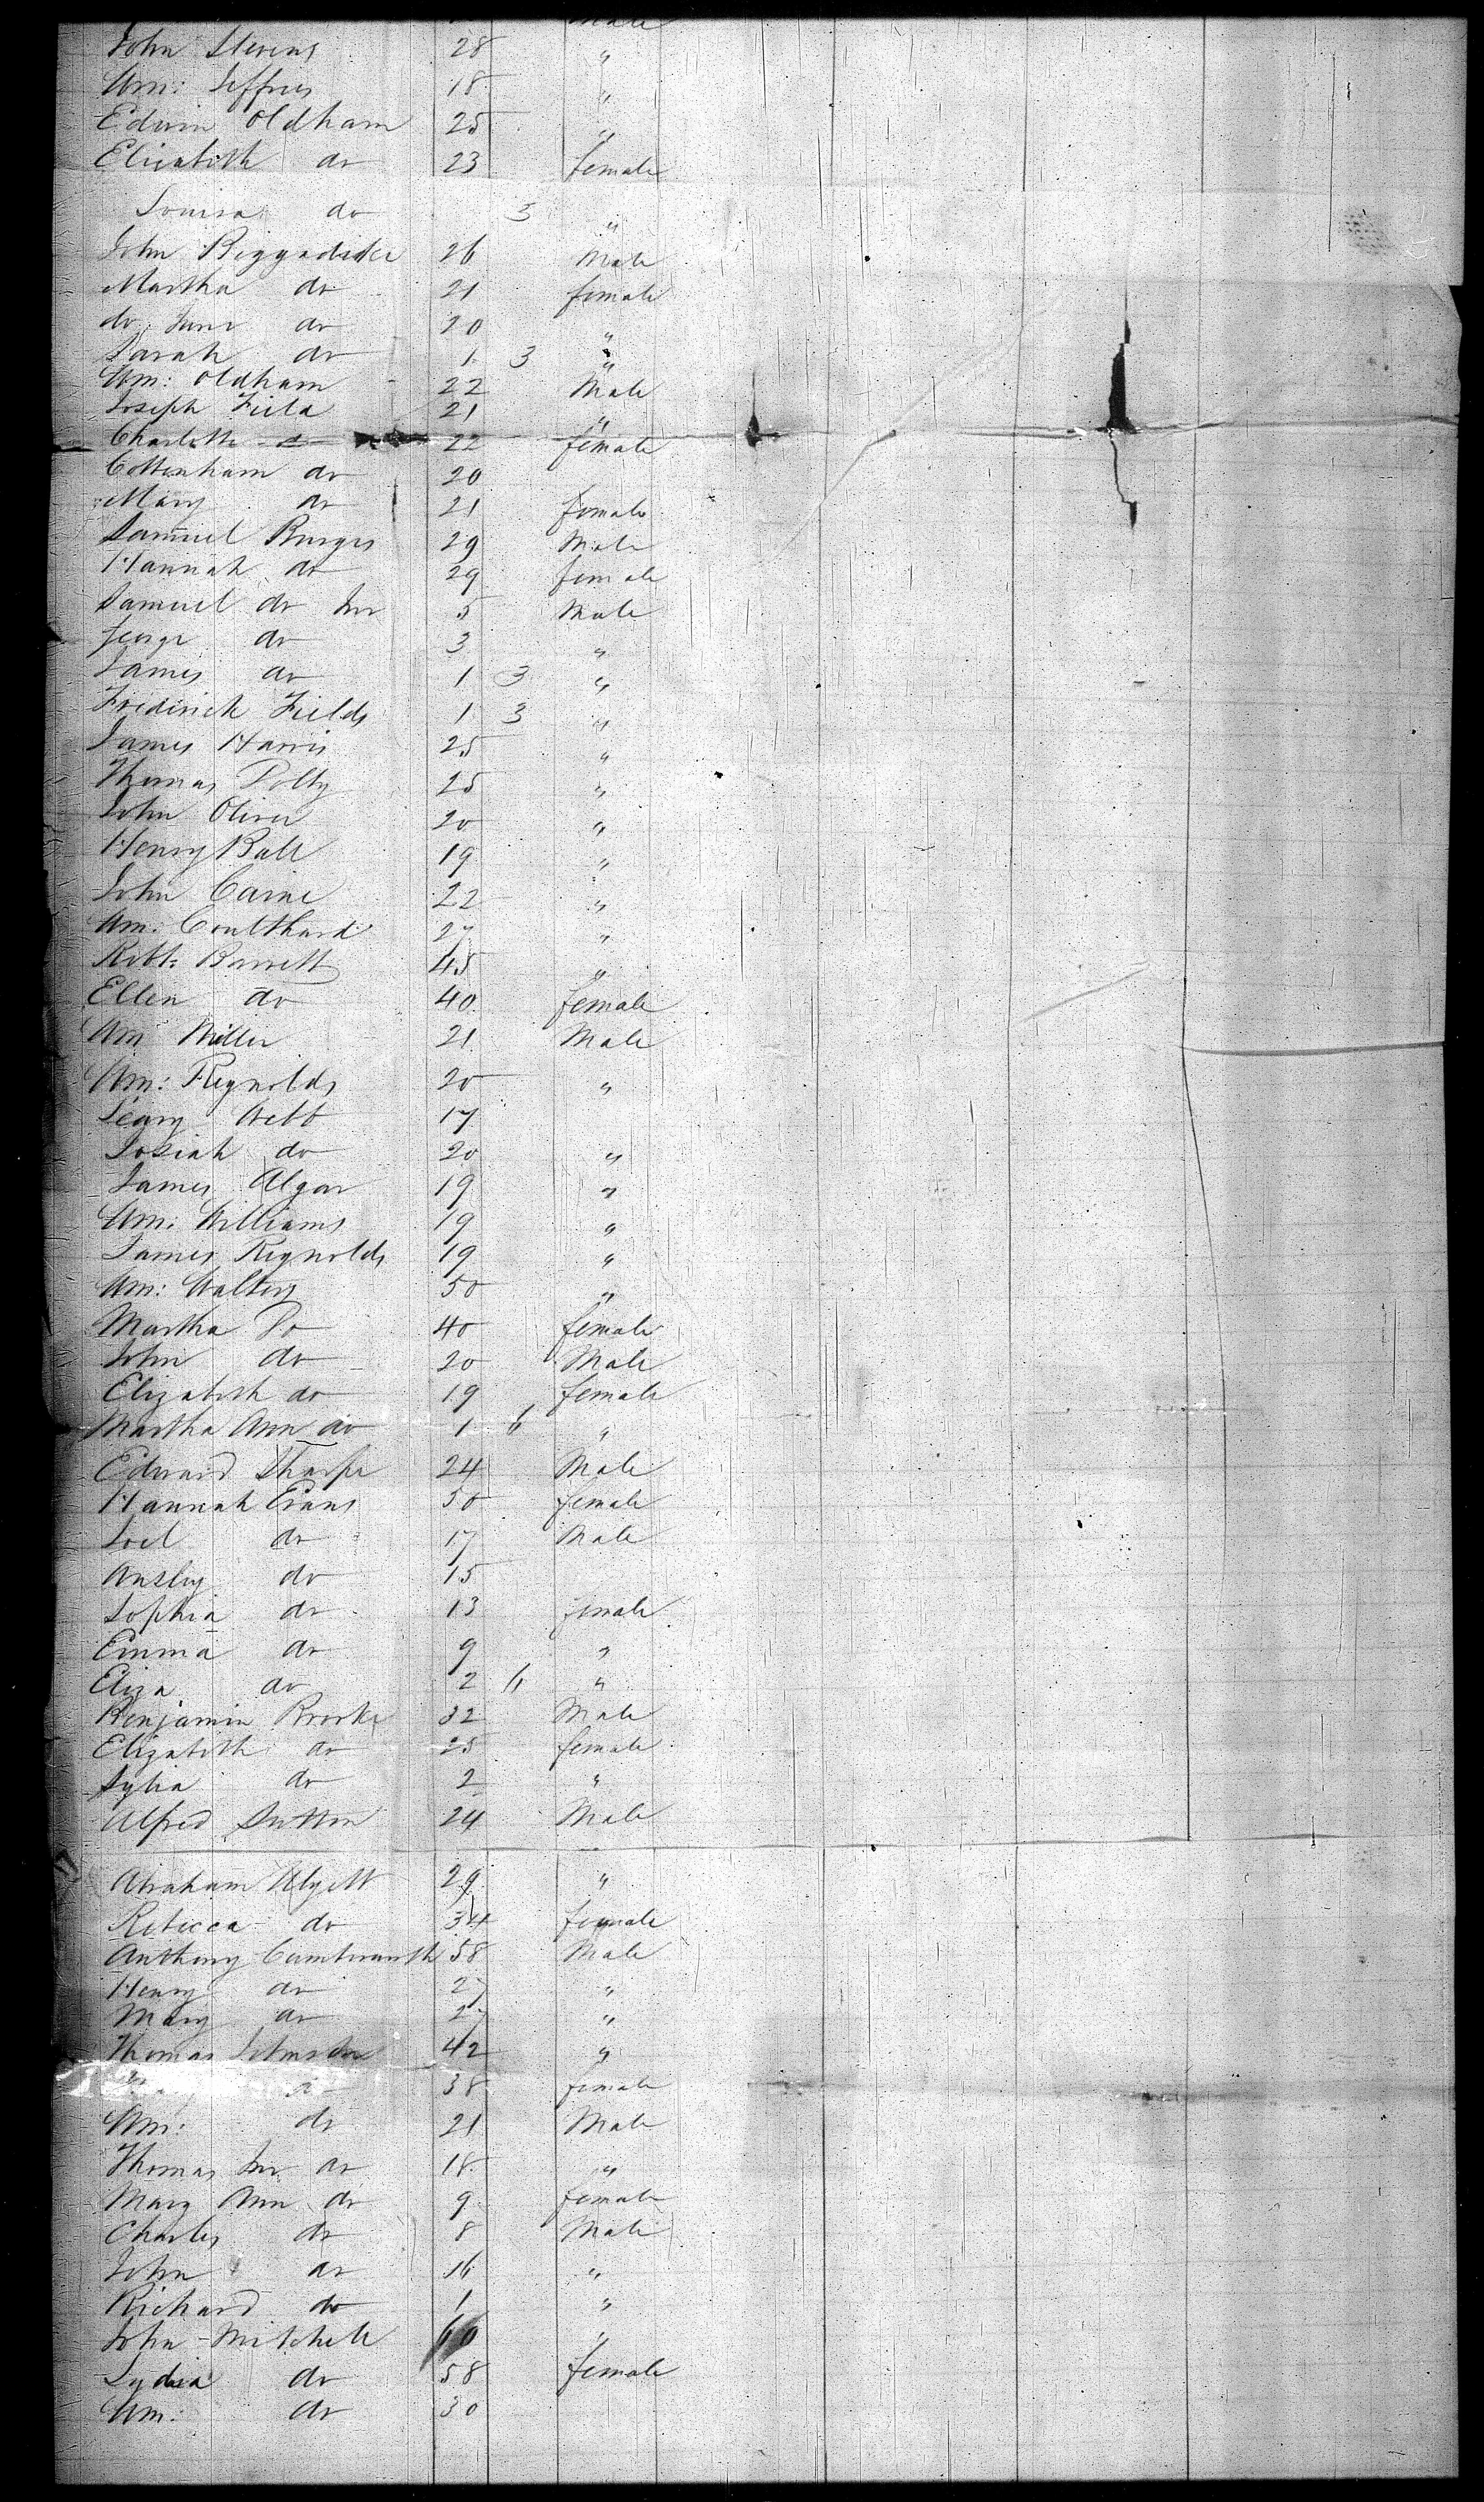 Male
John Stevens 28 "
Wm: Jeffries 18 "
Edwin Oldham 25 "
Elizabeth do 23 female
Louisa do 3 "
John Biggadike 26 Male
Martha do 21 female
do Jane do 20 "
Sarah do 1 3 "
Wm: Oldham 22 Male
Joseph Field 21 "
Charlotte do 22 female
Cottenham do 20
Mary do 21 female
Samuel Burges 29 Male
Hannah do 29 female
Samuel do Jnr 5 Male
George do 3 "
James do 1 3 "
Frederick Fields 1 3 "
James Harris 25 "
Thomas Polby 25 "
John Oliver 20 "
Henry Ball 19 "
John Carne 22 "
Wm: Coulthard 27 "
Robt: Barrett 45 "
Ellen do 40 female
Wm Miller 21 Male
Wm: Reynolds 20 "
Webb 17
Josiah do 20 "
James Algar 19 "
Wm: Williams 19 "
James Reynolds 19 "
Wm: Walters 50 "
Martha Do 40 female
John do 20 Male
Elizabeth do 19 female
Martha Ann do 1 6 "
Edward Sharpe 24 Male
Hannah Evans 50 female
Joel do 17 Male
Ansley do 15
Sophia do 13 female
Emma do 9 "
Eliza do 2 6 "
Benjamin Brooke 32 Male
Elizabeth do 25 female
Sylia do 2 "
Alfred Sutton 24 Male
Abraham Alyett 29 "
Rebecca do 34 female
Anthony 58 Male
Henry do 27 "
Mary do 27 "
Thomas Johnson 42 "
do 38 female
Wm: do 21 Male
Thomas Jnr do 18 "
Mary Ann do 9 female
Charles do 8 Male
John do 16 "
Richard do 1 "
John Mitchell 60 "
Lydia do 58 female
Wm: do 30